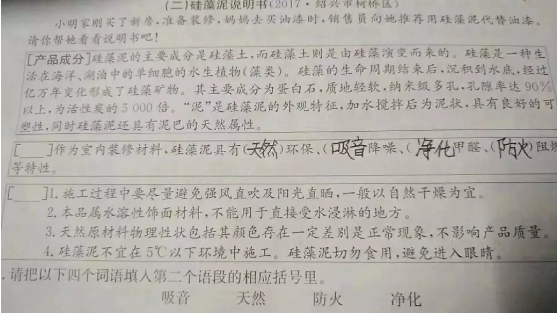 (二)硅藻泥说明书(2017·绍兴市柯桥区)
小明家刚买了新房,准备装修,妈妈去买油漆时,销售员向她推荐用硅藻泥代替油漆。
请你帮她看看说明书吧!
[产品成分]硅藻泥的主要成分是硅藻土,而硅藻土则是由硅藻演变而来的。硅藻是一种生
活在海洋、湖泊中的单细胞的水生植物(藻类)。硅藻的生命周期结束后,沉积到水底,经过
亿万年变化形成了硅藻矿物。其主要成分为蛋白石,质地轻软,纳米级多孔,孔隙率达90%
以上,为活性炭的5000倍。“泥”是硅藻泥的外观特征,加水搅拌后为泥状,具有良好的可
塑性,同时硅藻泥还具有泥巴的天然属性。
[ ]作为室内装修材料,硅藻泥具有(天然)环保、(吸音)降噪、(净化)甲醛、(防火)阻燃
等特性。
[ ]1.施工过程中要尽量避免强风直吹及阳光直晒,一般以自然干燥为宜。
2.本品属水溶性饰面材料,不能用于直接受水浸淋的地方。
3.天然原材料物理性状包括其颜色存在一定差别是正常现象,不影响产品质量。
4.硅藻泥不宜在5℃以下环境中施工。硅藻泥切勿食用,避免进入眼睛。
.请把以下四个词语填入第二个语段的相应括号里。
吸音 天然 防火 净化